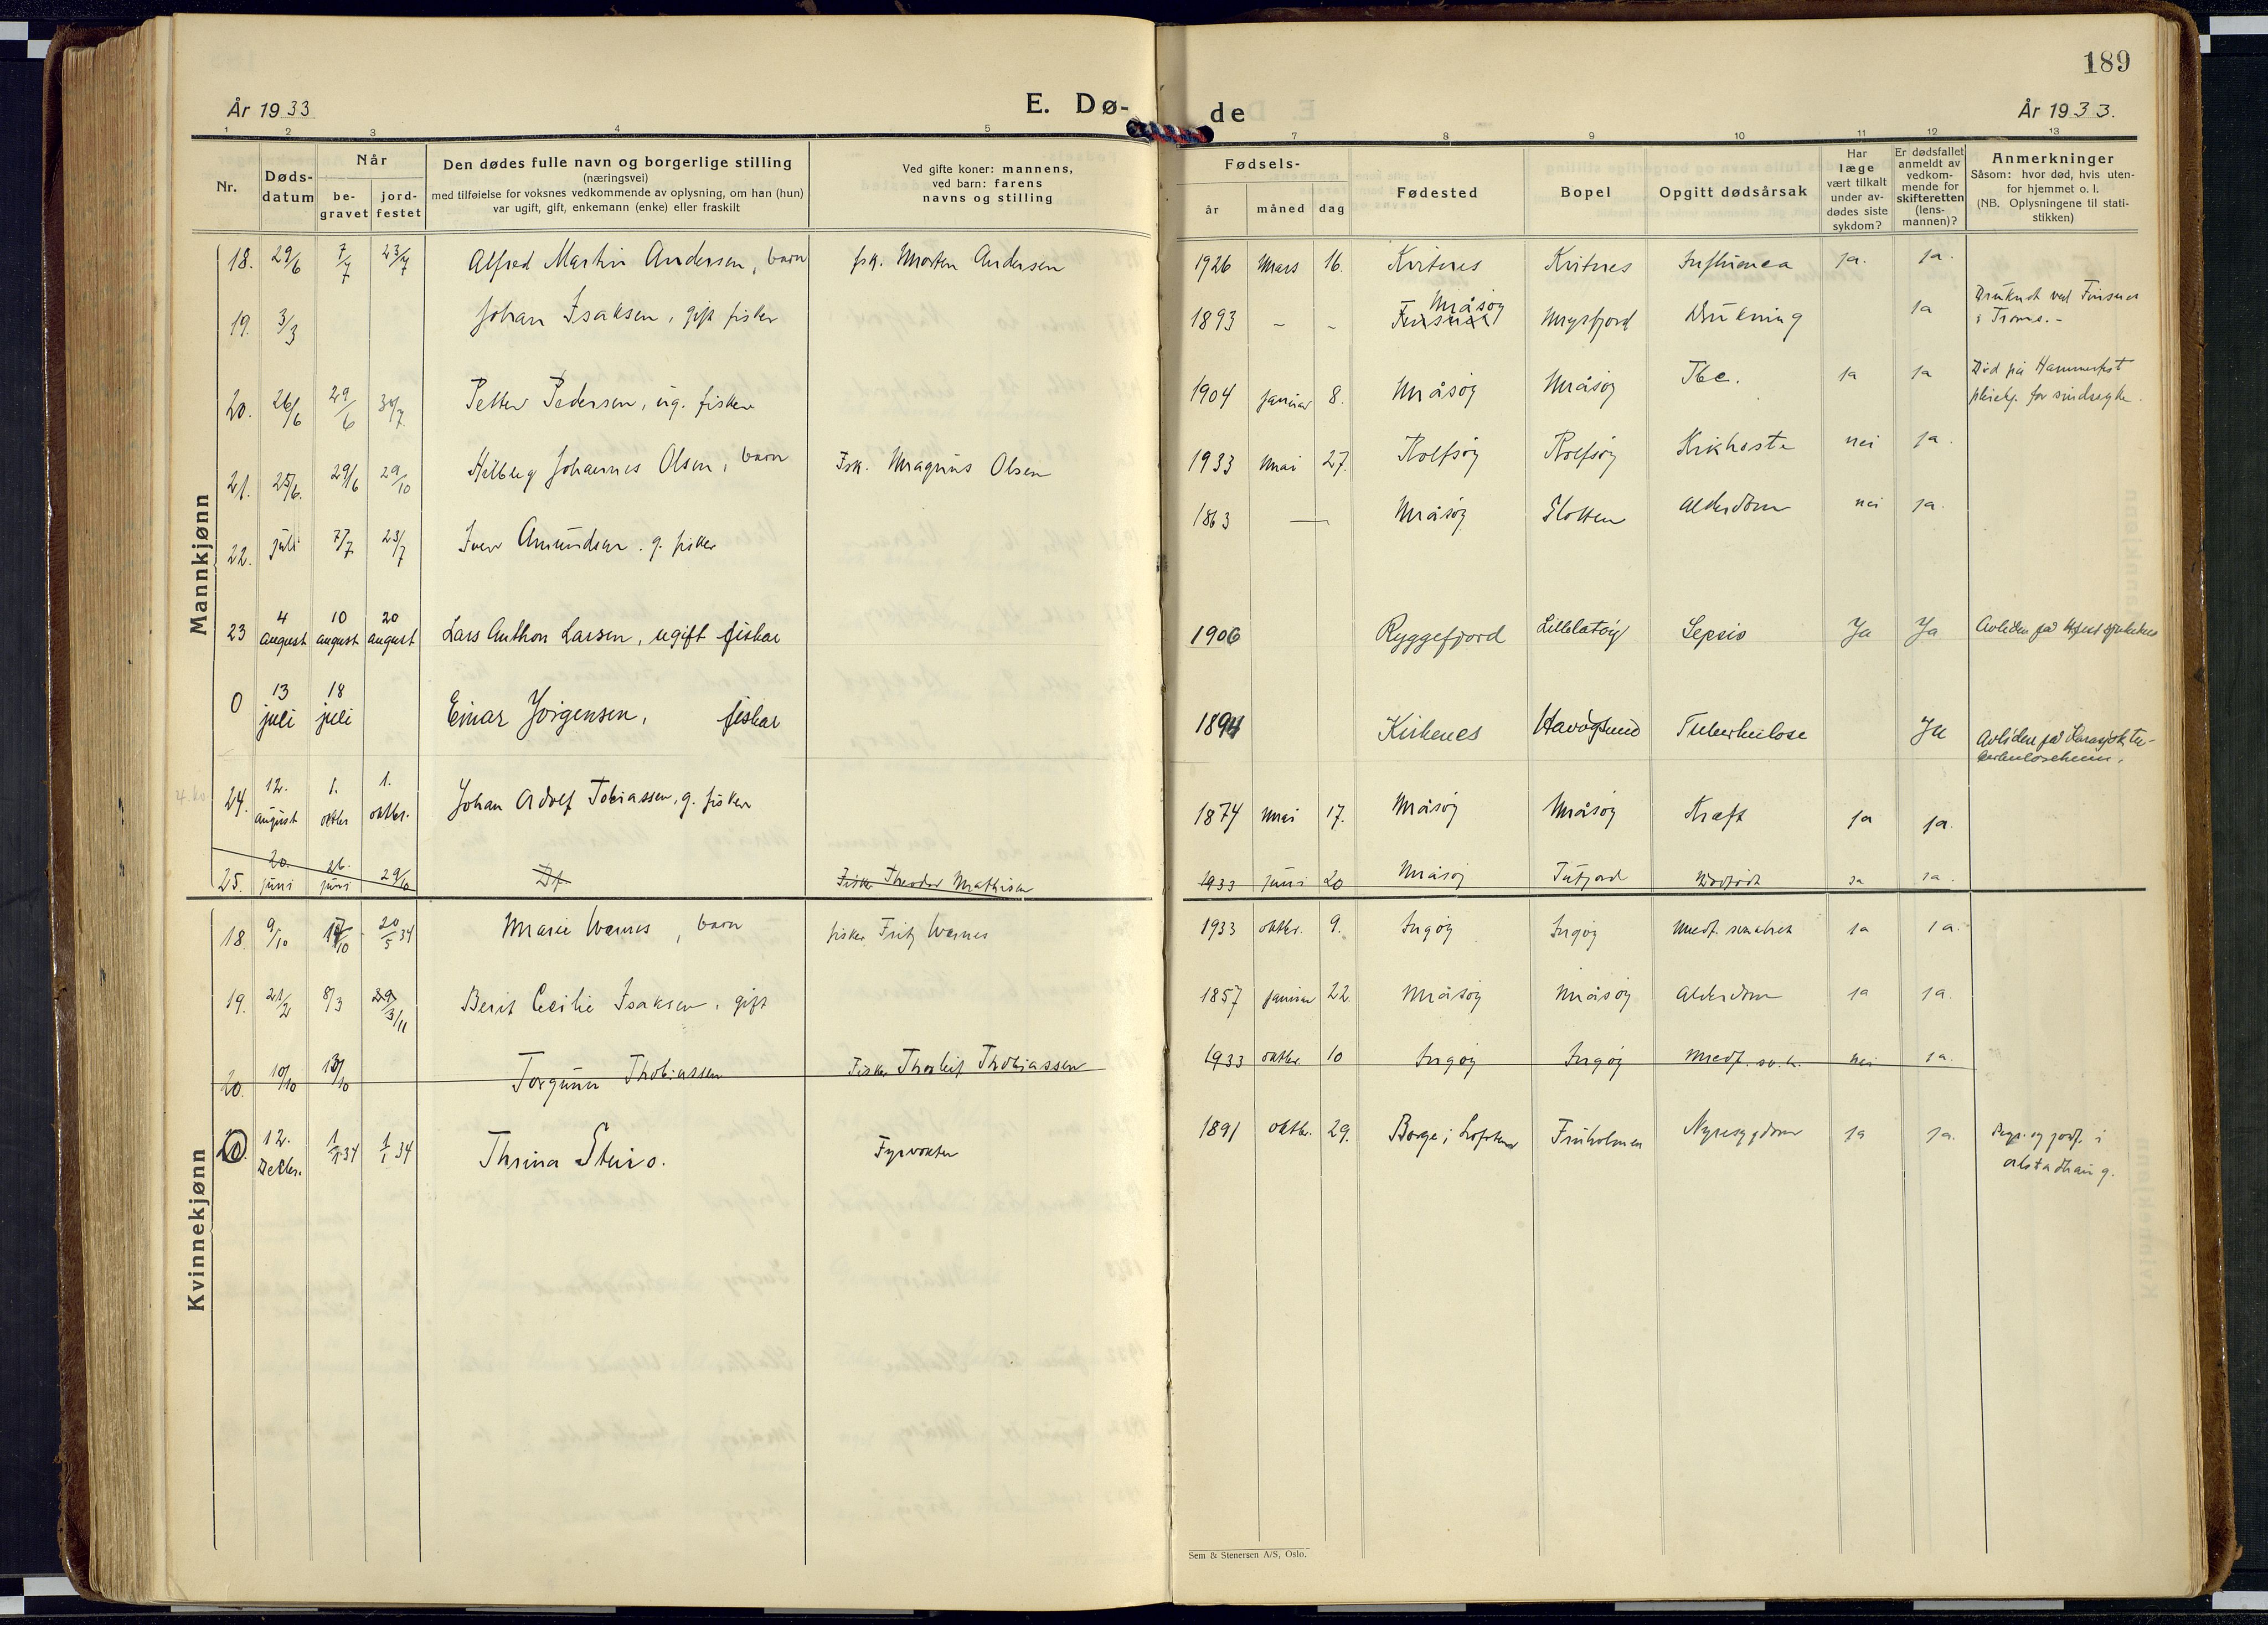 189
År 1933
E. Dø-
de
År 1933.
1 2 3 4 5 7 8 9 10 11 12 13
Nr.
Døds-
datum
Når
be-
gravet
jord-
festet
Den dødes fulle navn og borgerlige stilling
(næringsvei)
med tilføielse for voksnes vedkommende av oplysning, om han (hun)
var ugift, gift, enkemann (enke) eller fraskilt
Ved gifte koner: mannens,
ved barn: farens
navns og stilling
Fødsels-
år måned dag
Fødested
Bopel
Opgitt dødsårsak
Har
læge
vært tilkalt
under av-
dødes siste
sykdom?
Er dødsfallet
anmeldt av
vedkom-
mende for
skifteretten
(lens-
mannen)?
Anmerkninger
Såsom: hvor død, hvis uten-
for hjemmet o. l.
(NB. Oplysningene til stati-
stikken)
Mannkjønn
18. 29/6 7/7 23/7 Alfred Martin Andersen, barn fsk. Morten Andersen 1926 Mars 16. Kvitnes Kvitnes Influenca ja. ja.
19. 3/3 Johan Isaksen, gift fisker 1893 - - Måsøy Finsnes Myrfjord Drukning ja Druknet ved Finsnes
i Troms.-
20. 26/6 29/6 30/7 Petter Pedersen, ug. fisker 1904 januar 8. Måsøy Måsøy Tbc. ja ja Død på Hammerfest
pleiehj. for sindssyke.
21. 25/6. 29/6 29/10 Hilbleg Johannes Olsen, barn Fsk. Magnus Olsen 1933 Mai 27. Rolfsøy Rolfsøy Kikhoste nei ja.
22. juli 7/7 23/7 Iver Amundsen. g. fisker 1863 — Måsøy Slotten Alderdom nei ja.
23 4 august 10 august 20 august Lars Anthon Larsen, ugift fiskar 1906 Ryggefjord Lillelatøy Sepsis Ja Ja Avliden på Hfest sjukehus
0 13 juli 18 juli Einar Jørgensen, fiskar 1894 Kirkenes Havøysund Tuberkulose Ja Avliden på Karasjok tu-
berkuloseheim.
24. 12. august 1. oktbr 1. oktbr. Johan Adolf Tobiassen, g. fisker 1874 Mai 17. Måsøy Måsøy Kræft ja ja.
25. 20. juni 26. juni 29/10 Df Fisker Theodor Mathisen 1933 juni 20 Måsøy Tufjord Dødfødt ja ja.
Kvinnekjønn
18. 9/10 17/10 20/5 34 Marie Warnes, barn fisker Fritz Warnes 1933 oktbr. 9. Ingøy Ingøy Medf. svakhet ja ja.
19. 21/2 8/3 Berit Cecilie Isaksen, gift 1857 januar 22. Måsøy Måsøy Alderdom ja ja.
20. 10/10 13/10 Torgunn Thobiassen Fisker Thorleif Thobiassen 1933 oktbr. 10 Ingøy Ingøy Medf. sv.h. nei ja.
20. 12. Decbr. 1/1 34 1/1 34 Thrina Steiro. Fyrvokter 1891 oktbr. 29. Borge i Lofoten Fruholmen Nyresygdom ja ja. Begr. og jordf. i
Alstadhaug.
Sem & Stenersen A/S, Oslo.